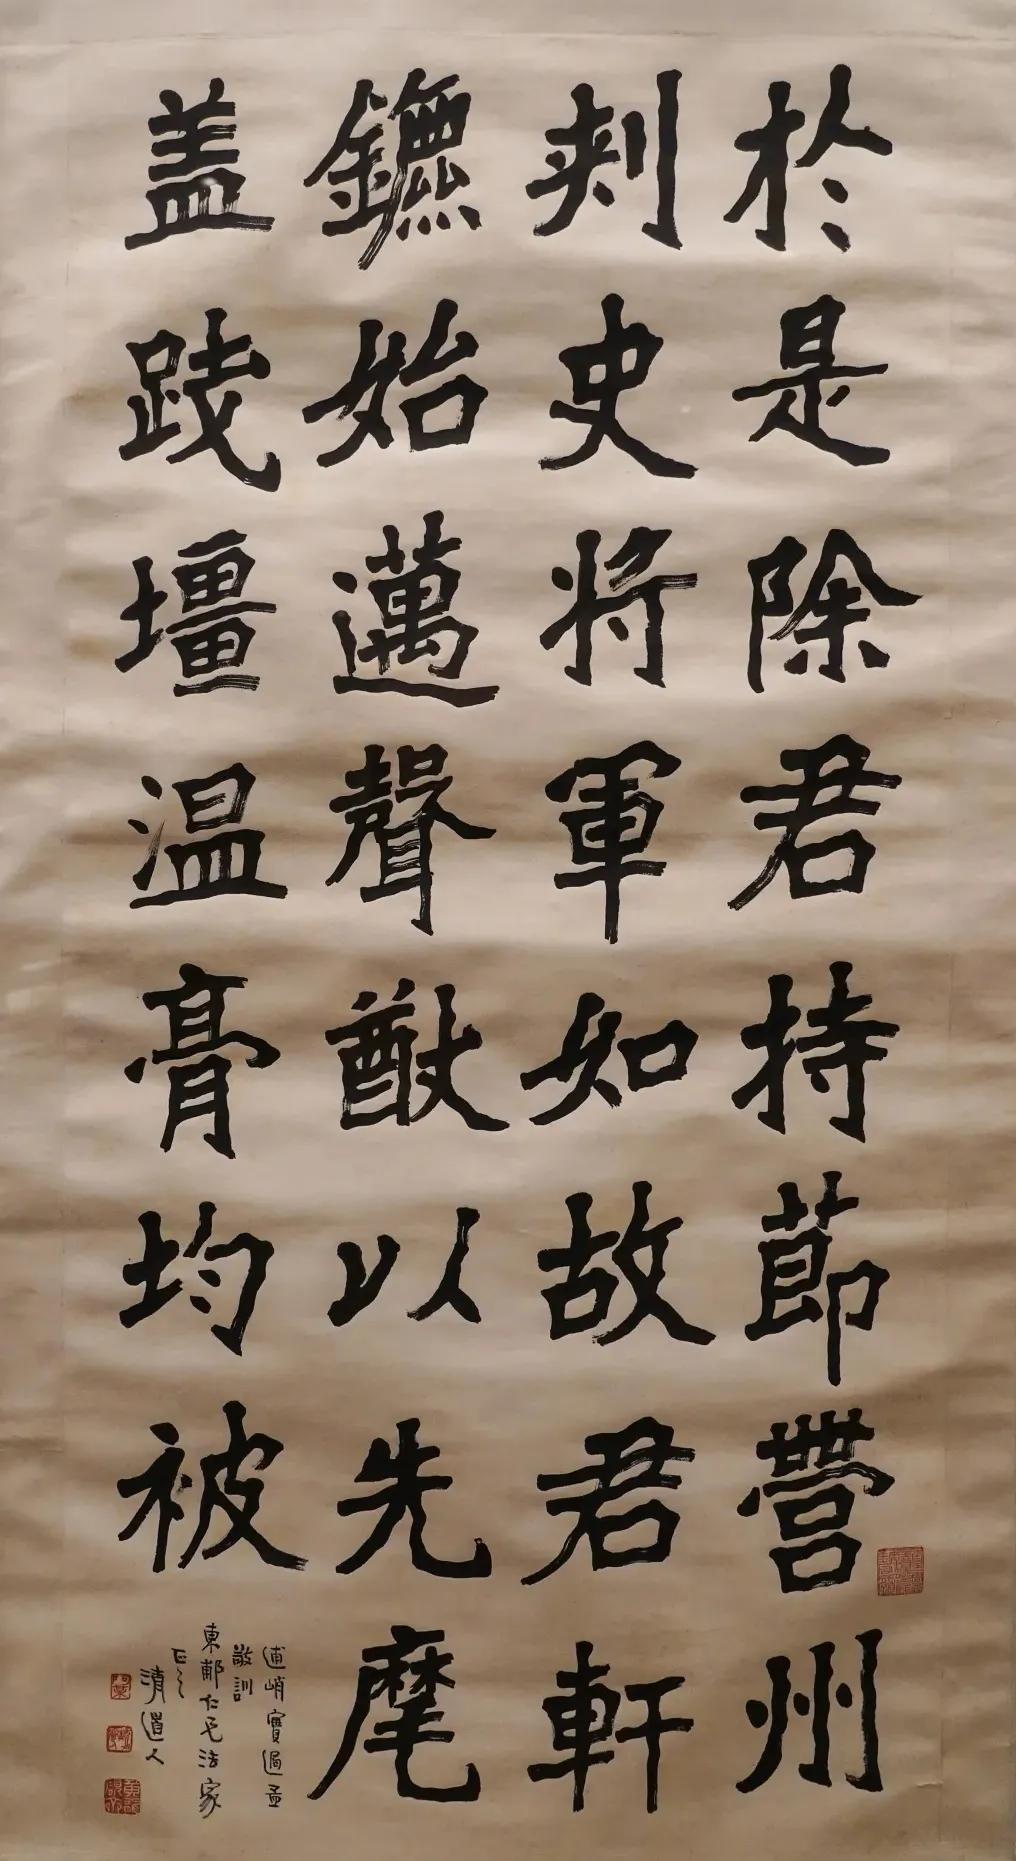 於是除君持節營州
刾史將軍如故君軒
鑣始邁聲猷以先麾
盖踐壃温膏均被
逋峭實過孟
敬訓
東仁兄法家
正之
清道人